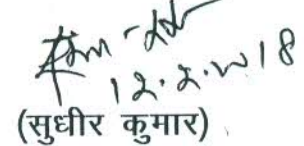 12.2.2018
(सुधीर कुमार)